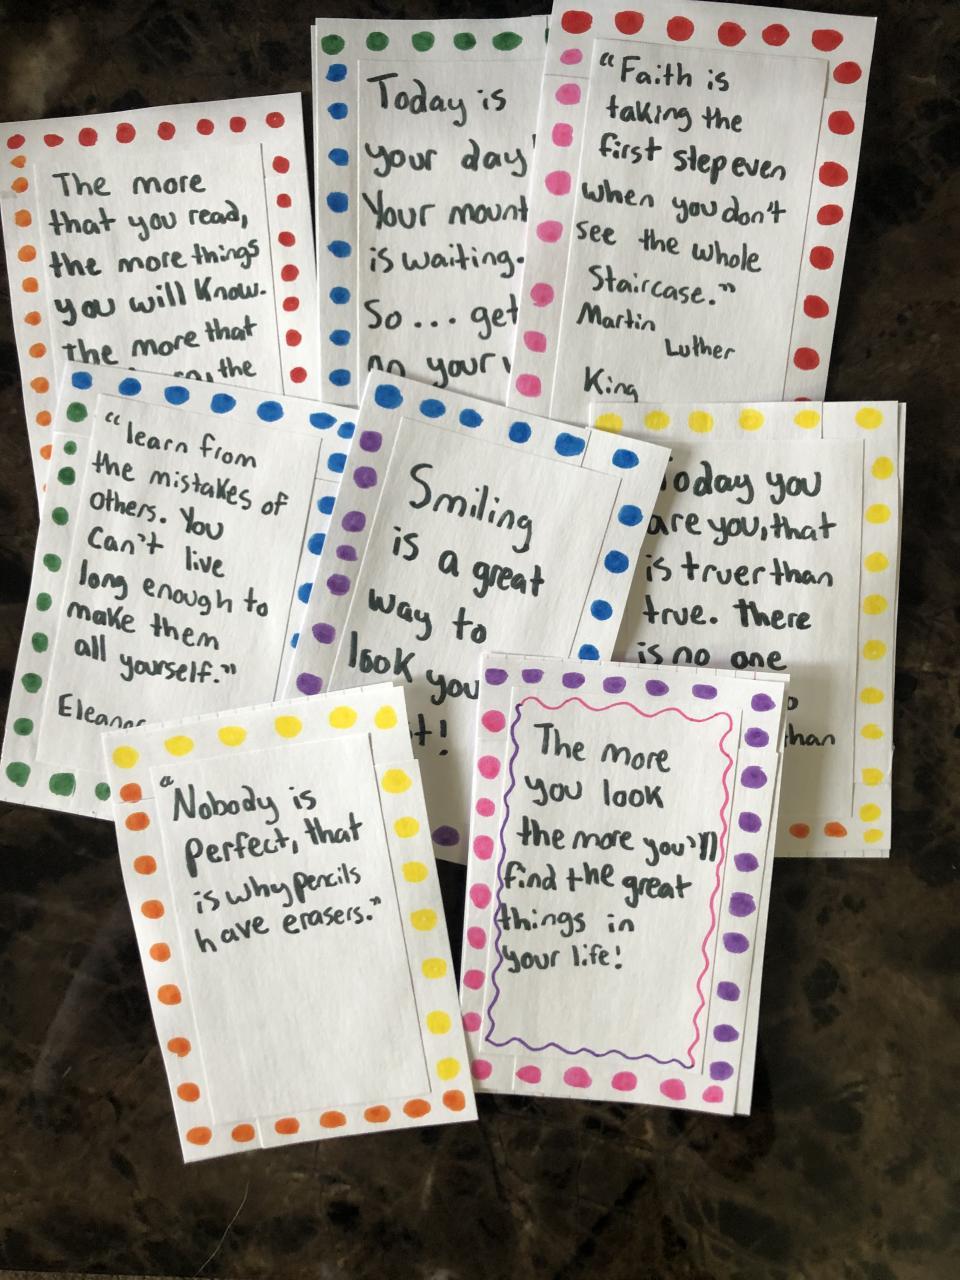 The more
that you read,
the more things
you will know.
The more that
the
Today is
your day!
Your mount
is waiting.
So... get
on your
"Faith is
taking the
first step even
when you don't
see the whole
Staircase."
Martin
Luther
King
"learn from
the mistakes of
others. You
Can't live
long enough to
make them
all yourself."
Eleanor
Smiling
is a great
way to
look you
t!
Today you
are you, that
is truer than
true. There
is no one
than
"Nobody is
perfect, that
is why pencils
have erasers."
The more
you look
the more you'll
find the great
things in
your life!